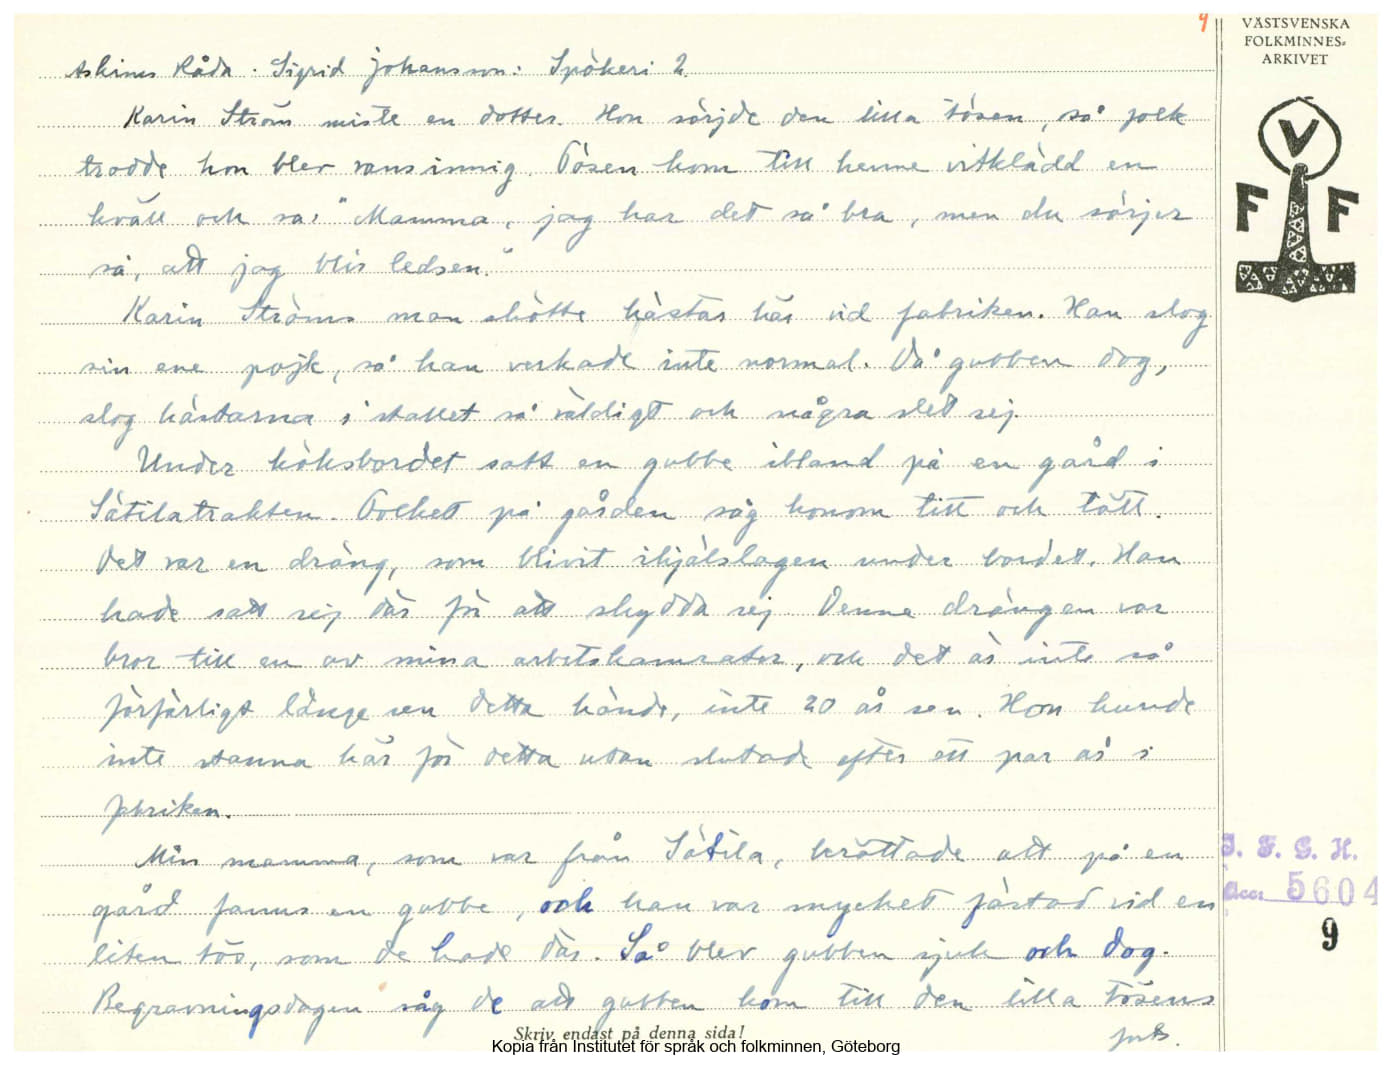 4
VÄSTSVENSKA
FOLKMINNES-
ARKIVET
V
F F
Askims Råda. Sigrid Johansson: Spökeri 2.
Karin Ström miste en dotter. Hon sörjde den lilla tösen, så folk
trodde hon blev vansinnig. Tösen kom till henne vitklädd en
kväll och sa: "Mamma, jag har det så bra, men du sörjer
så, att jag blir ledsen."
Karin Ströms man skötte hästar här vid fabriken. Han slog
sin ene pojk, så han verkade inte normal. Då gubben dog,
slog hästarna i stallet så väldigt och några slet sej.
Under köksbordet satt en gubbe ibland på en gård i
Sätilatrakten. Folket på gården såg honom titt och tätt.
Det var en dräng, som blivit ihjälslagen under bordet. Han
hade satt sej där för att skydda sej. Denne drängen var
bror till en av mina arbetskamrater, och det är inte så
förfärligt länge sen detta hände, inte 20 år sen. Hon kunde
inte stanna här för detta utan slutade efter ett par år i
fbriken.
Min mamma, som var från Sätila, berättade att på en
gård fanns en gubbe, och han var mycket fästad vid en
liten tös, som de hade där. Så blev gubben sjuk och dog.
Begravningsdagen såg de att gubben kom till den lilla tösens
forts.
I. F. G. H.
Acc. 5604
9
Skriv endast på denna sida!
Kopia från Institutet för språk och folkminnen, Göteborg